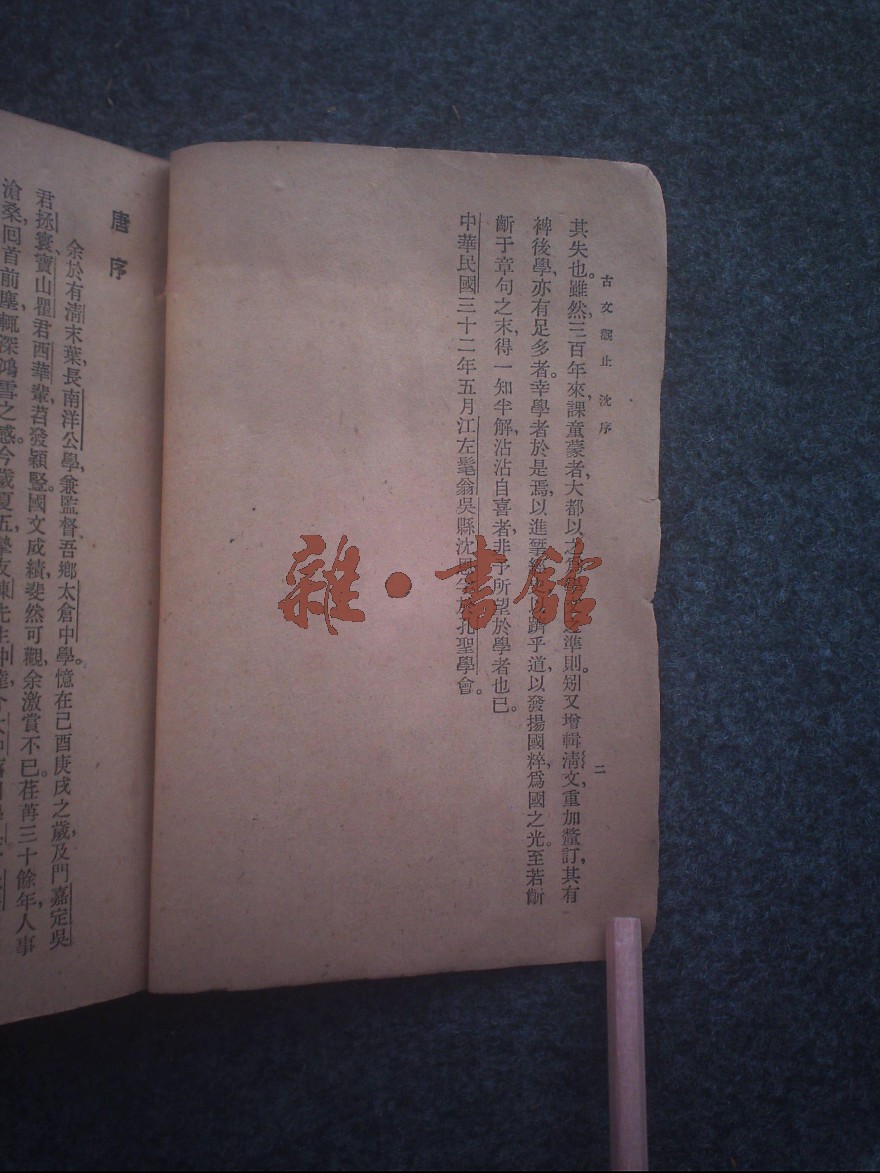 古文觀止 沈序
二
其失也。雖然，三百年來，課童蒙者，大都以之準則。矧又增輯清文，重加釐訂，其有
裨後學，亦有足多者。幸學者於是焉，以進以躋乎道，以發揚國粹，爲國之光。至若齗
齗于章句之末，得一知半解，沾沾自喜者，非予所望於學者也已。
中華民國三十二年五月，江左髦翁吳縣沈於孔聖學會。
雜·書館
唐序
余於有清末葉，長南洋公學，兼監督吾鄉太倉中學。憶在己酉庚戌之歲，及門嘉定吳
君拯寰、寶山瞿君西華輩，苕發穎豎，國文成績，斐然可觀，余激賞不已。荏苒三十餘年，人事
滄桑，回首前塵，輒深鴻雪之感。今歲夏五，學友陳先生